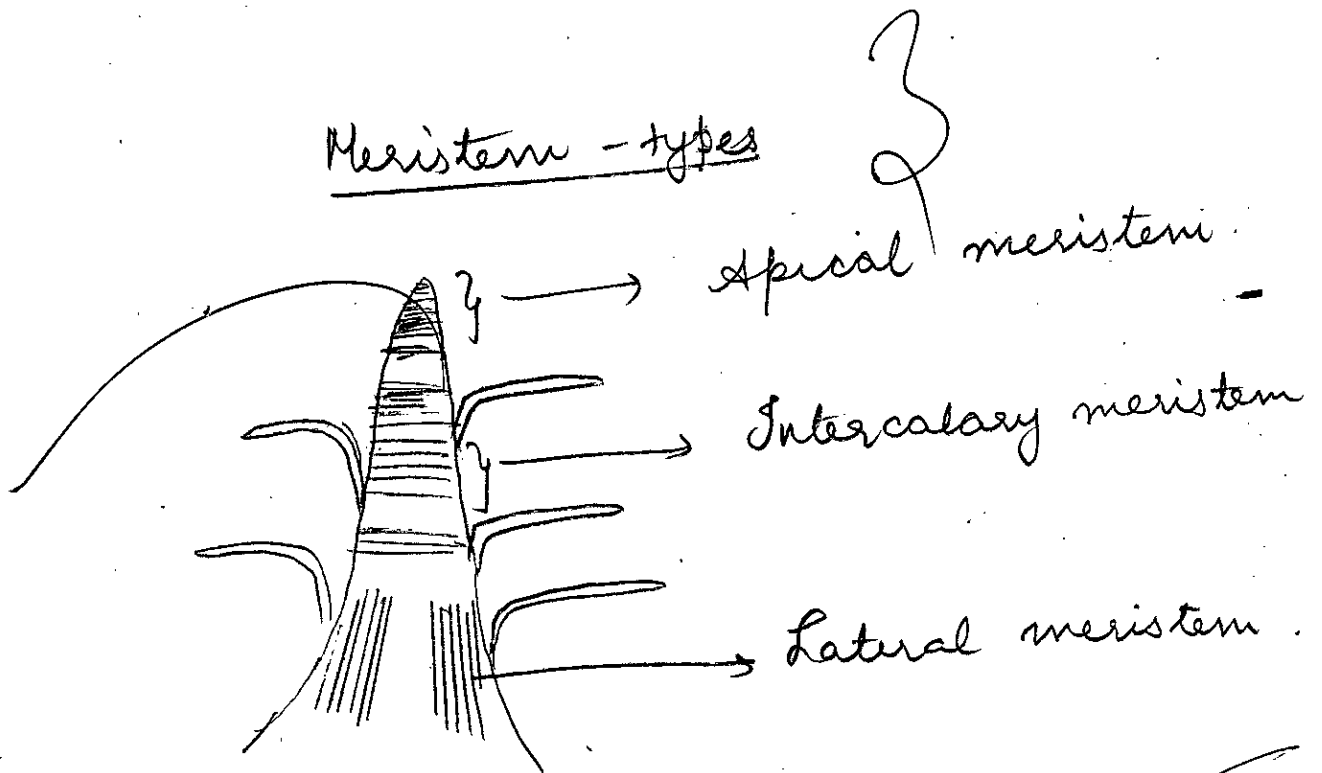 Meristem - types
3
Apical meristem.
Intercalary meristem
Lateral meristem.